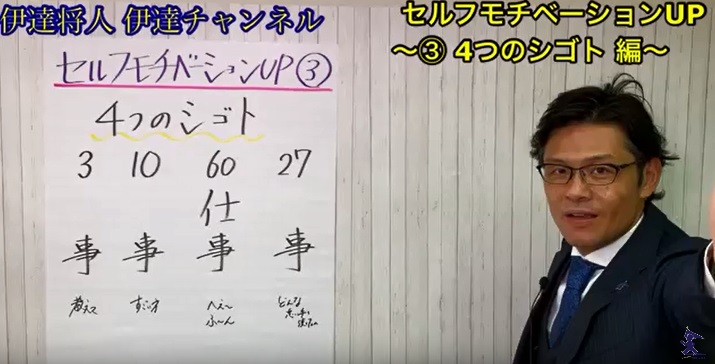 伊達将人 伊達チャンネル
セルフモチベーションUP
～③ 4つのシゴト 編～
セルフモチベーションUP③
4つのシゴト
3 10 60 27
仕
事 事 事 事
教えて すごい へぇ～
ふ～ん